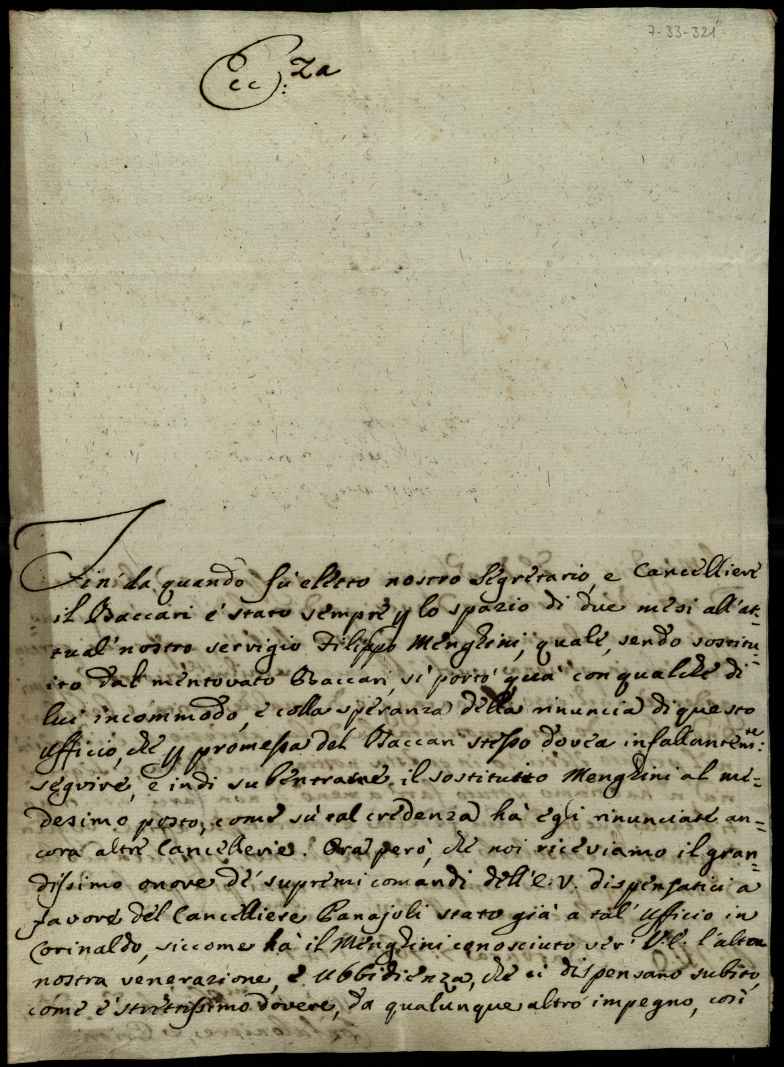 7-33-321
Ecc:za
Fin' da' quando fù eletto nostro Segretario, e Cancelliere
il Baccari è stato sempre p lo spazio di due mesi all'at=
tual' nostro servigio Filippo Menghini, quale, sendo sostitu=
ito dal mentovato Baccari, si portò quà con qualche di
lui incommodo, e colla speranza della rinuncia di questo
Ufficio, che p promessa del Baccari stesso dovea infallantem:te
seguire, e indi subentrare il sostituito Menghini al me=
desimo posto, come sù tal credenza hà egli rinunciate an=
cora altre Cancellerie. Ora però, che noi riceviamo il gran=
dissimo onore de' supremi comandi dell'E.V. dispensatici a
favore del Cancelliere Panajoli stato già a tal' Ufficio in
Corinaldo, siccome hà il Menghini conosciuto ver' V.E. l'alta
nostra venerazione, e Ubbidienza, che ci dispensano subito,
come è strettissimo dovere, da qualunque altro impegno, così